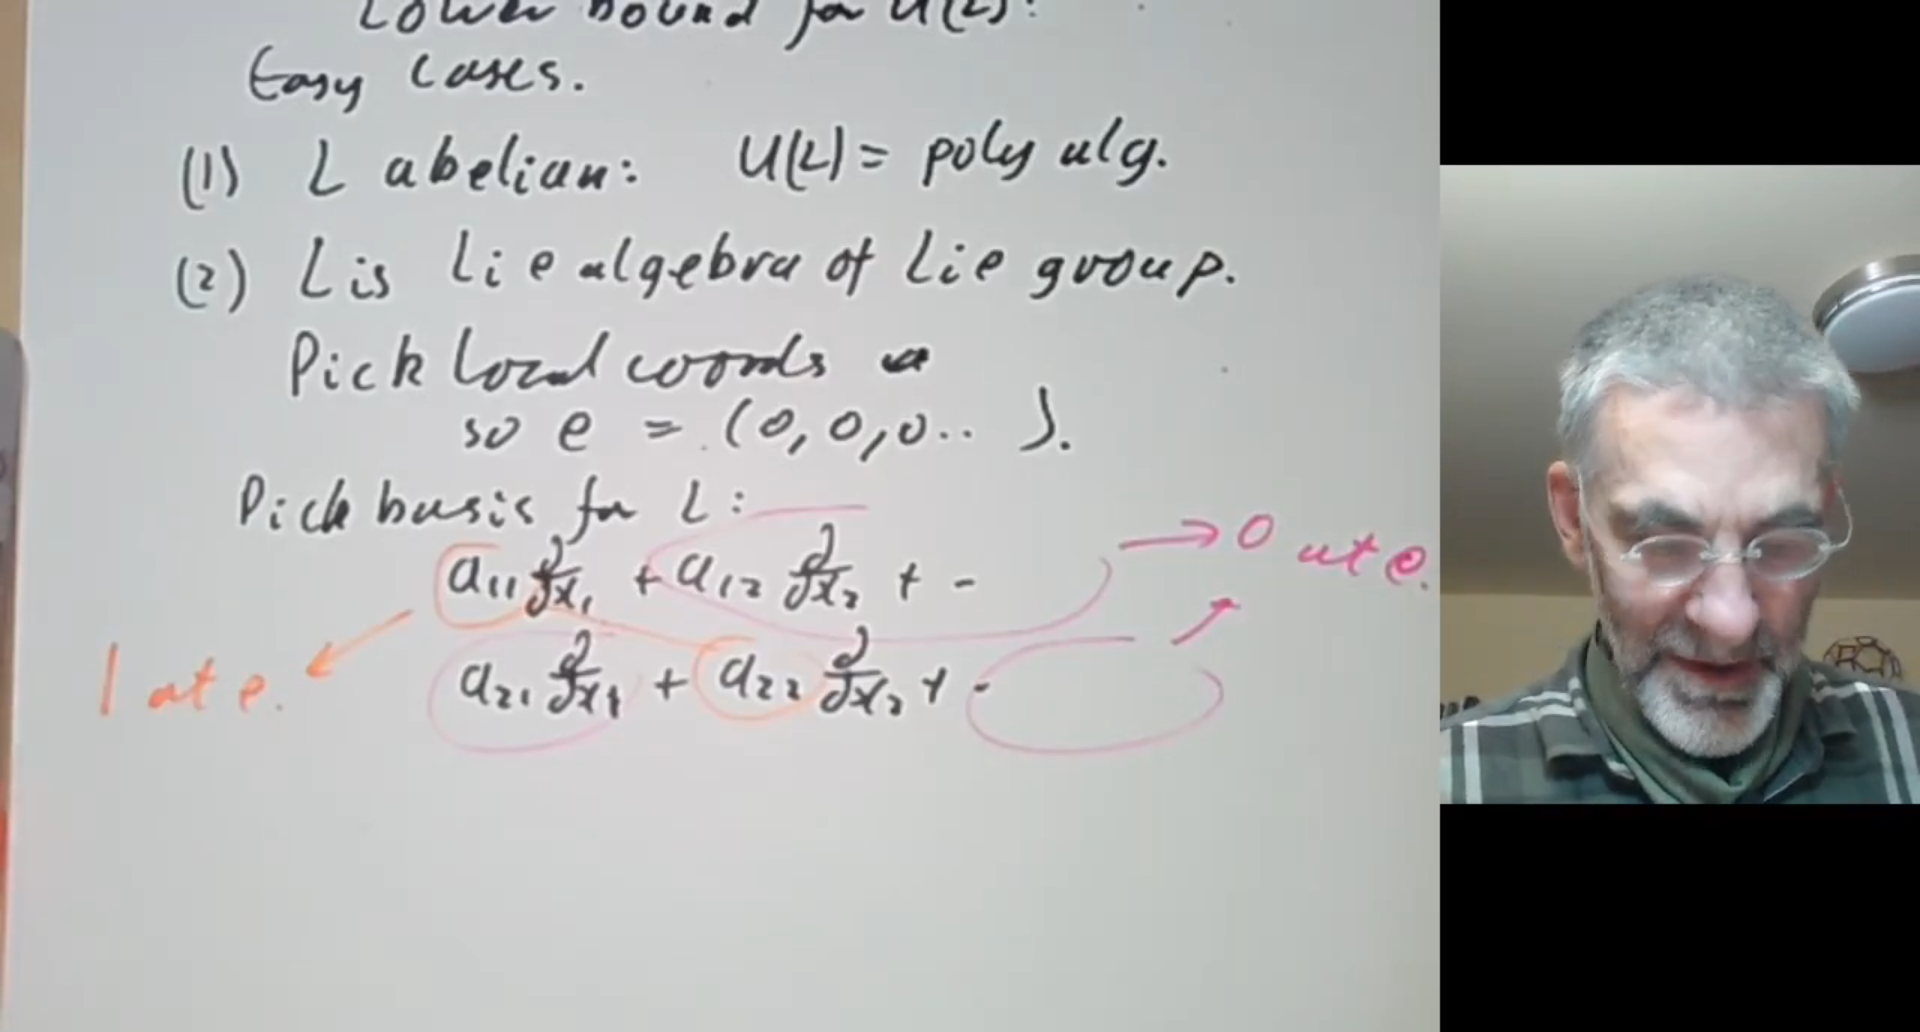 Lower bound for U(L).
Easy cases.
(1) L abelian: U(L) = poly alg.
(2) L is Lie algebra of Lie group.
Pick local coords
so e = (0,0,0.. ).
Pick basis for L:
a₁₁ ∂/∂x₁ + a₁₂ ∂/∂x₂ + -
→ 0 at e.
a₂₁ ∂/∂x₁ + a₂₂ ∂/∂x₂ + -
1 at e.